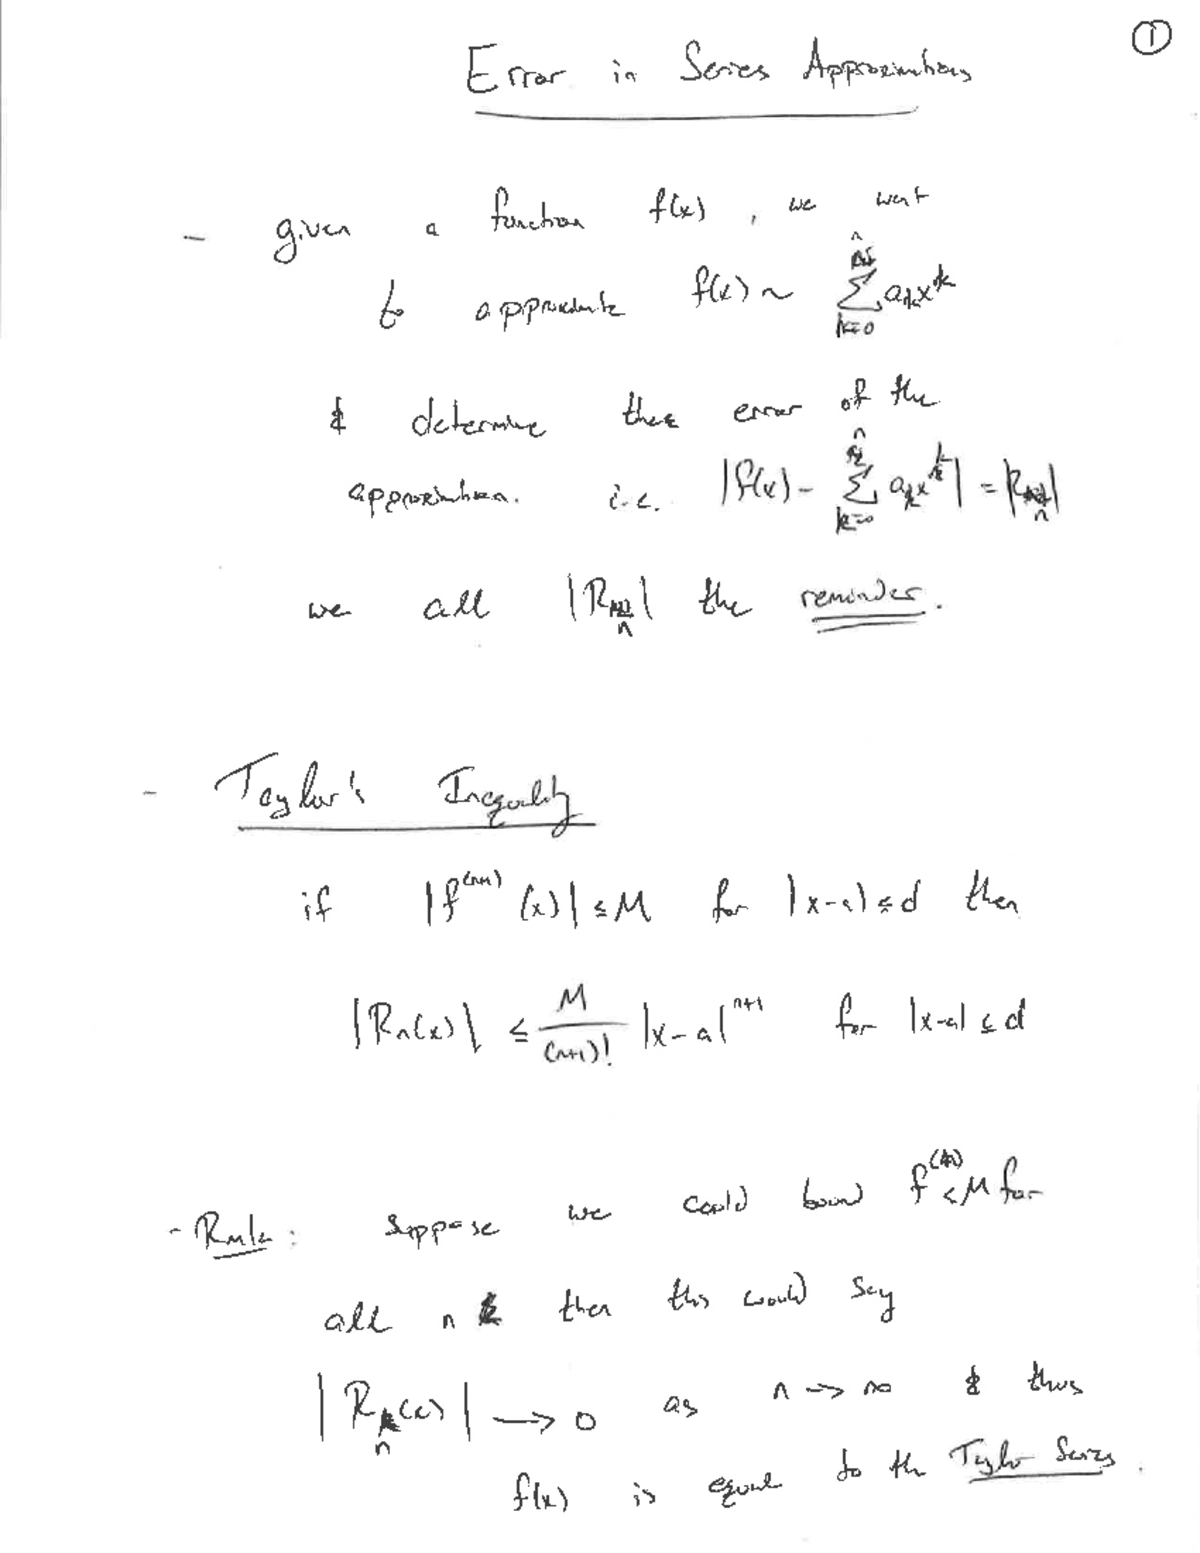 ①
Error in Series Approximations
- given a function f(x), we want
to approximate f(x) ~ ∑_{k=0}^{n} a_k x^k
& determine the error of the
approximation. i.e. |f(x) - ∑_{k=0}^{n} a_k x^k| = |R_n|
we call |R_n| the reminder.
- Taylor's Inequality
if |f^{(n+1)}(x)| ≤ M for |x-a| ≤ d then
|R_n(x)| ≤ \frac{M}{(n+1)!} |x-a|^{n+1} for |x-a| ≤ d
- : Suppose we could bound f^{(n)} ≤ M for
all n then this would say
|R_n(x)| → 0 as n → ∞ & thus
f(x) is equal to the Taylor Series.